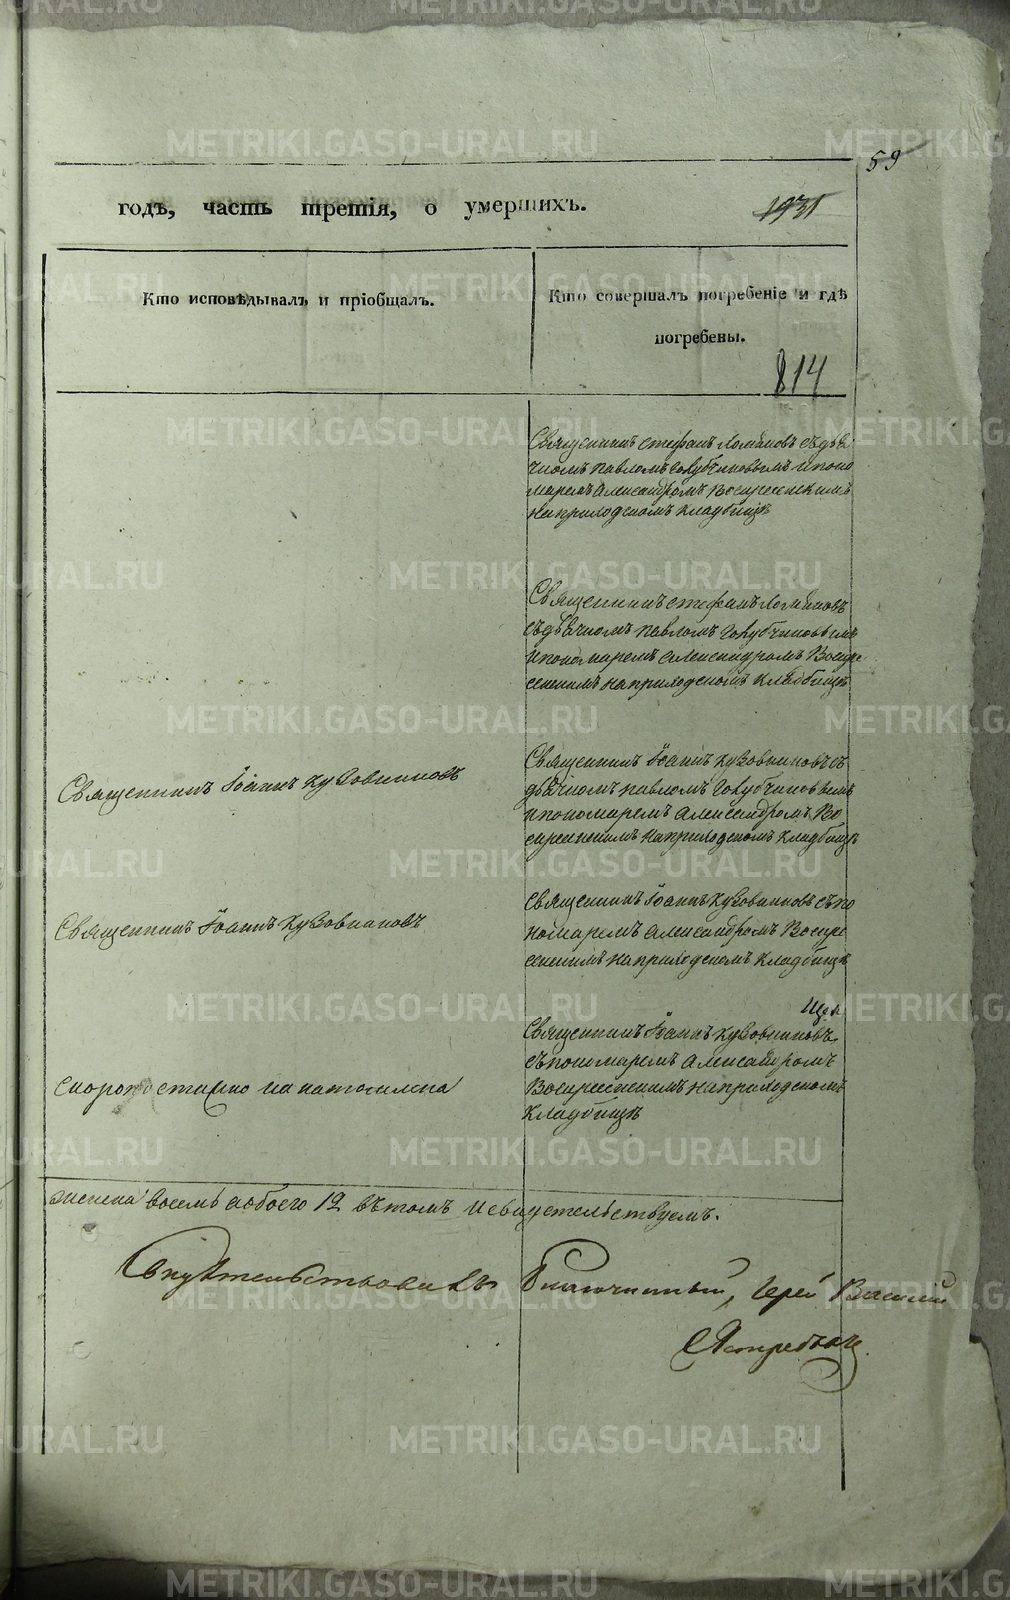 59
годъ, часть третія, о умершихъ.
1931
Кто исповѣдывалъ и пріобщалъ.
Кто совершалъ погребеніе и гдѣ
погребены.
814
Священникъ Стефанъ Логиновъ съ дья
чкомъ Павломъ Голубчиковымъ и поно
маремъ Александромъ Воскресенскимъ
на приходскомъ кладбищѣ
Священникъ Стефанъ Логиновъ
съ дьячкомъ Павломъ Голубчиковымъ
и пономаремъ Александромъ Воскре
сенскимъ на приходскомъ кладбищѣ
Священникъ Іоаннъ Кузовниковъ
Священникъ Іоаннъ Кузовниковъ съ
дьячкомъ Павломъ Голубчиковымъ
и пономаремъ Александромъ Во
скресенскимъ на приходскомъ кладбищѣ
Священникъ Іоаннъ Кузовниковъ
Священникъ Іоаннъ Кузовниковъ съ по
номаремъ Александромъ Воскре
сенскимъ на приходскомъ кладбищѣ
Скоропостижно
Священникъ Іоаннъ Кузовниковъ
съ пономаремъ Александромъ
Воскресенскимъ на приходскомъ
кладбищѣ
женска восемь а обоего 12 въ томъ и свидетельствуемъ.
Свидѣтельствовалъ Благочинный, Іерей Василій
Ястребовъ
METRIKI.GASO-URAL.RU